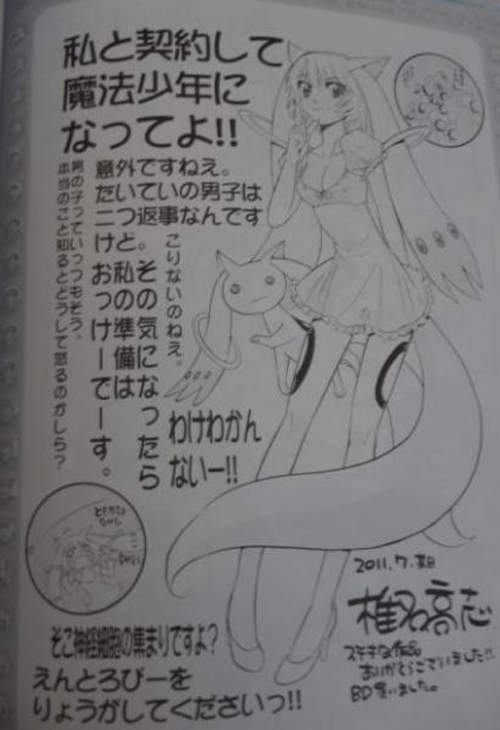 私と契約して
魔法少年に
なってよ!!
意外ですねえ。
たいていの男子は
二つ返事なんです
けど。
こりないのねえ。
その気になったら
私の準備は
おっけーでーす。
男の子っていっつもそう。
本当のこと知るとどうして怒るのかしら?
わけわかん
ないー!!
そこ神経細胞の集まりですよ?
えんとろぴーを
りょうがしてくださいっ!!
2011.7.
椎名高志
ステキな作品
ありがとうございました!!
BD買いました。